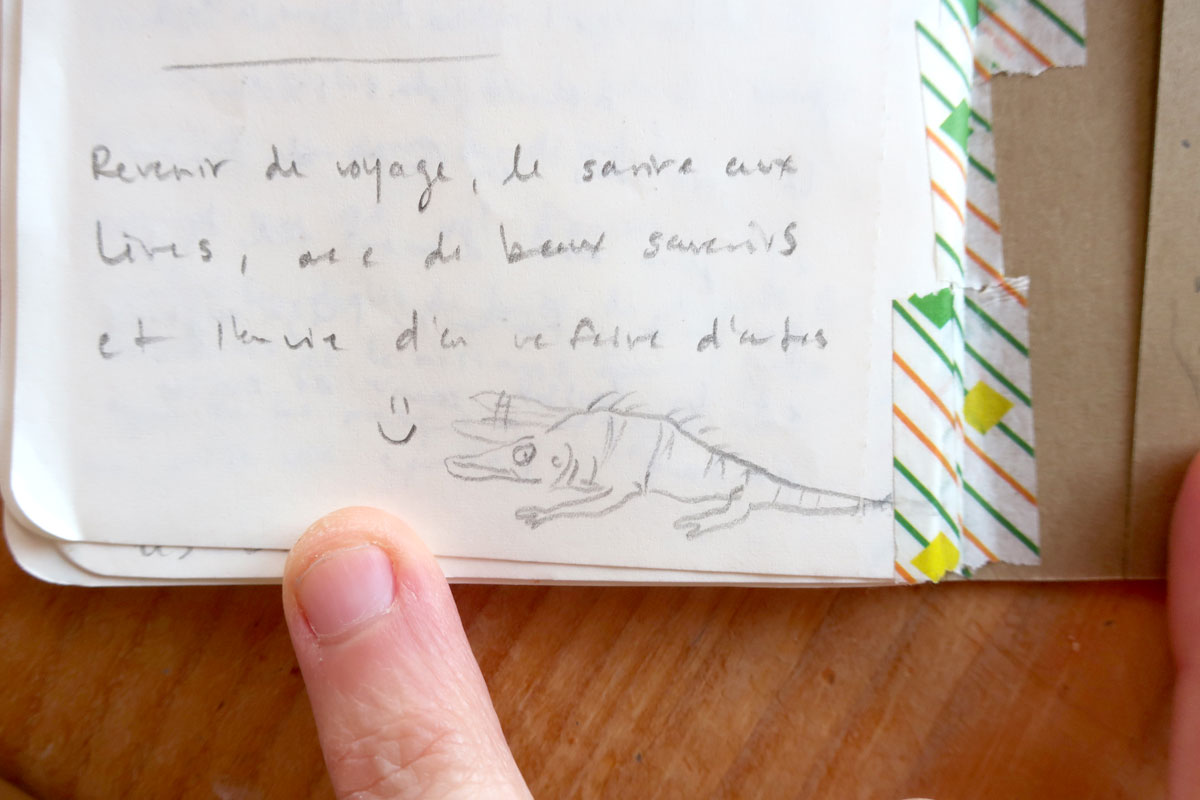 Revenir de voyage, le sourire aux
lèvres, avec de beaux souvenirs
et l'envie d'en refaire d'autres